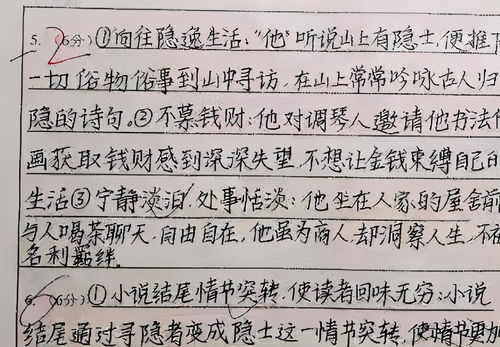 5. (6分)①向往隐逸生活:"他"听说山上有隐士,便推下
一切俗物俗事到山中寻访,在山上常常吟咏古人归
隐的诗句。②不慕钱财:他对调琴人邀请他书法
画获取钱财感到深深失望,不想让金钱束缚自己的
生活③宁静淡泊,处事恬淡:他坐在人家的屋
与人喝茶聊天,自由自在,他虽为商人,却洞察人生,不被
名利羁绊.
6. (6分)①小说结尾情节突转,使读者回味无穷:小说
结尾通过寻隐者变成隐士这一情节突转,使情节更加